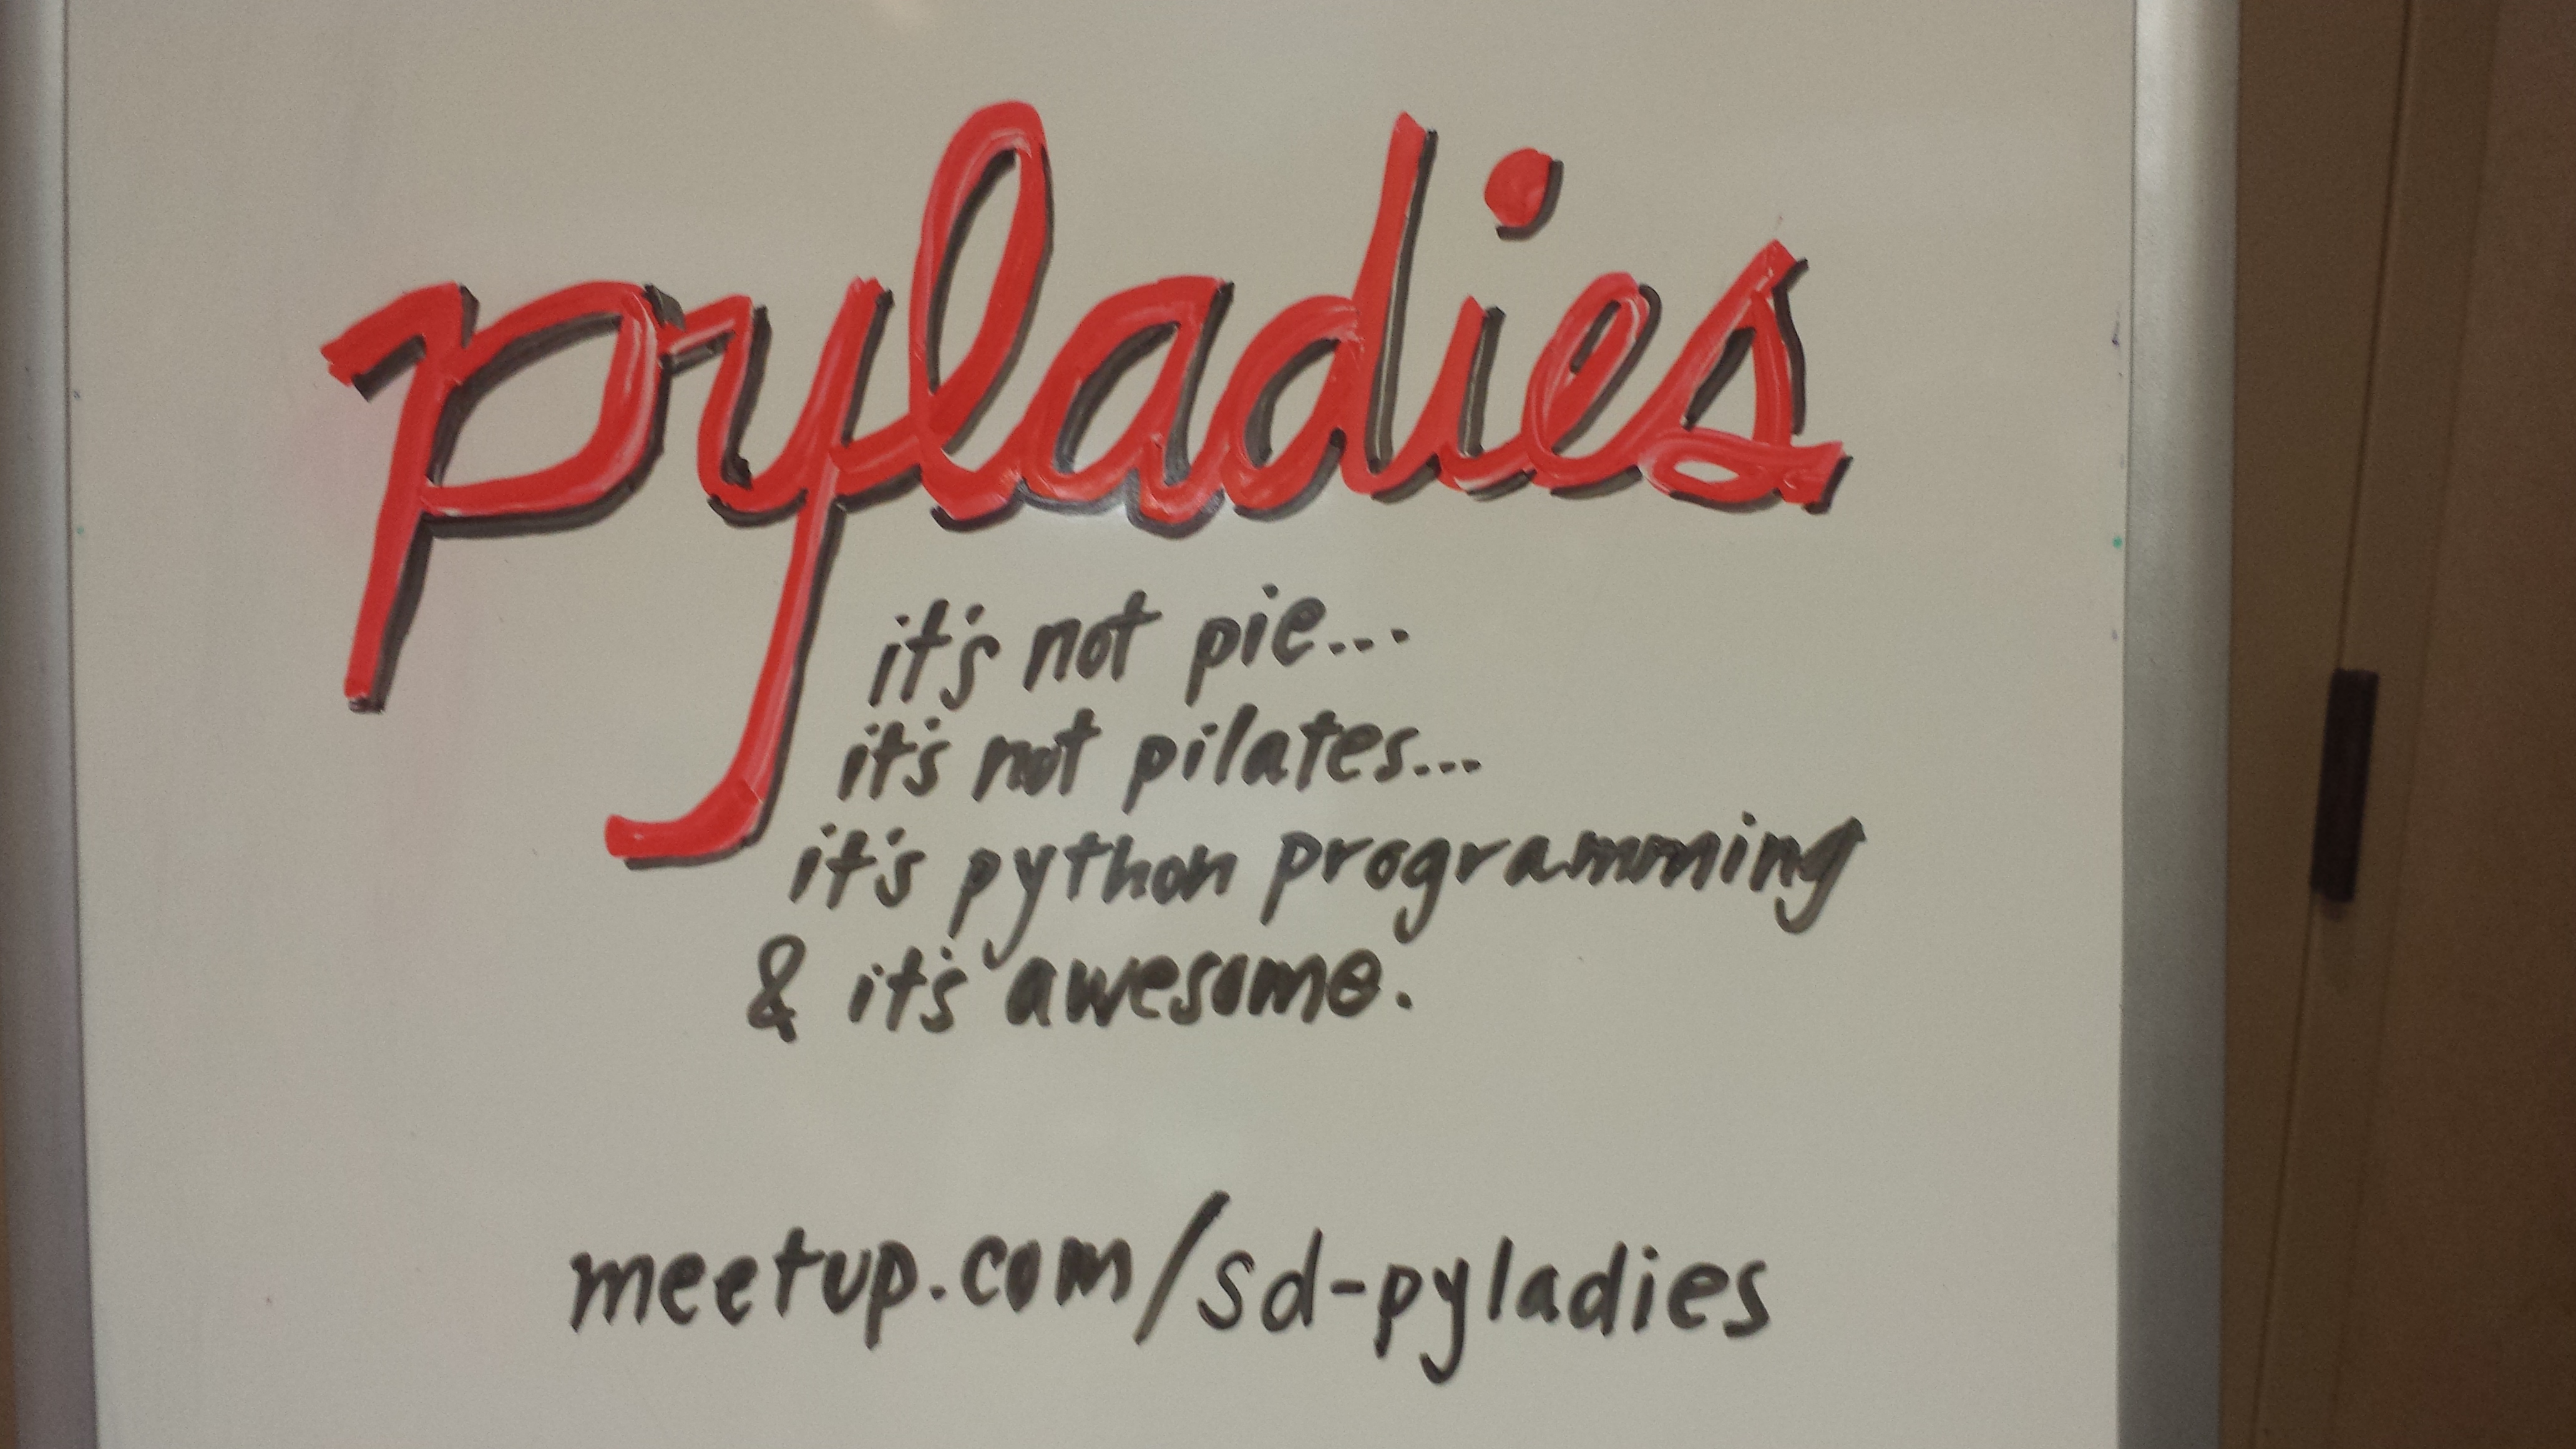 pyladies
it's not pie...
it's not pilates...
it's python programming
& it's awesome.
meetup.com/sd-pyladies